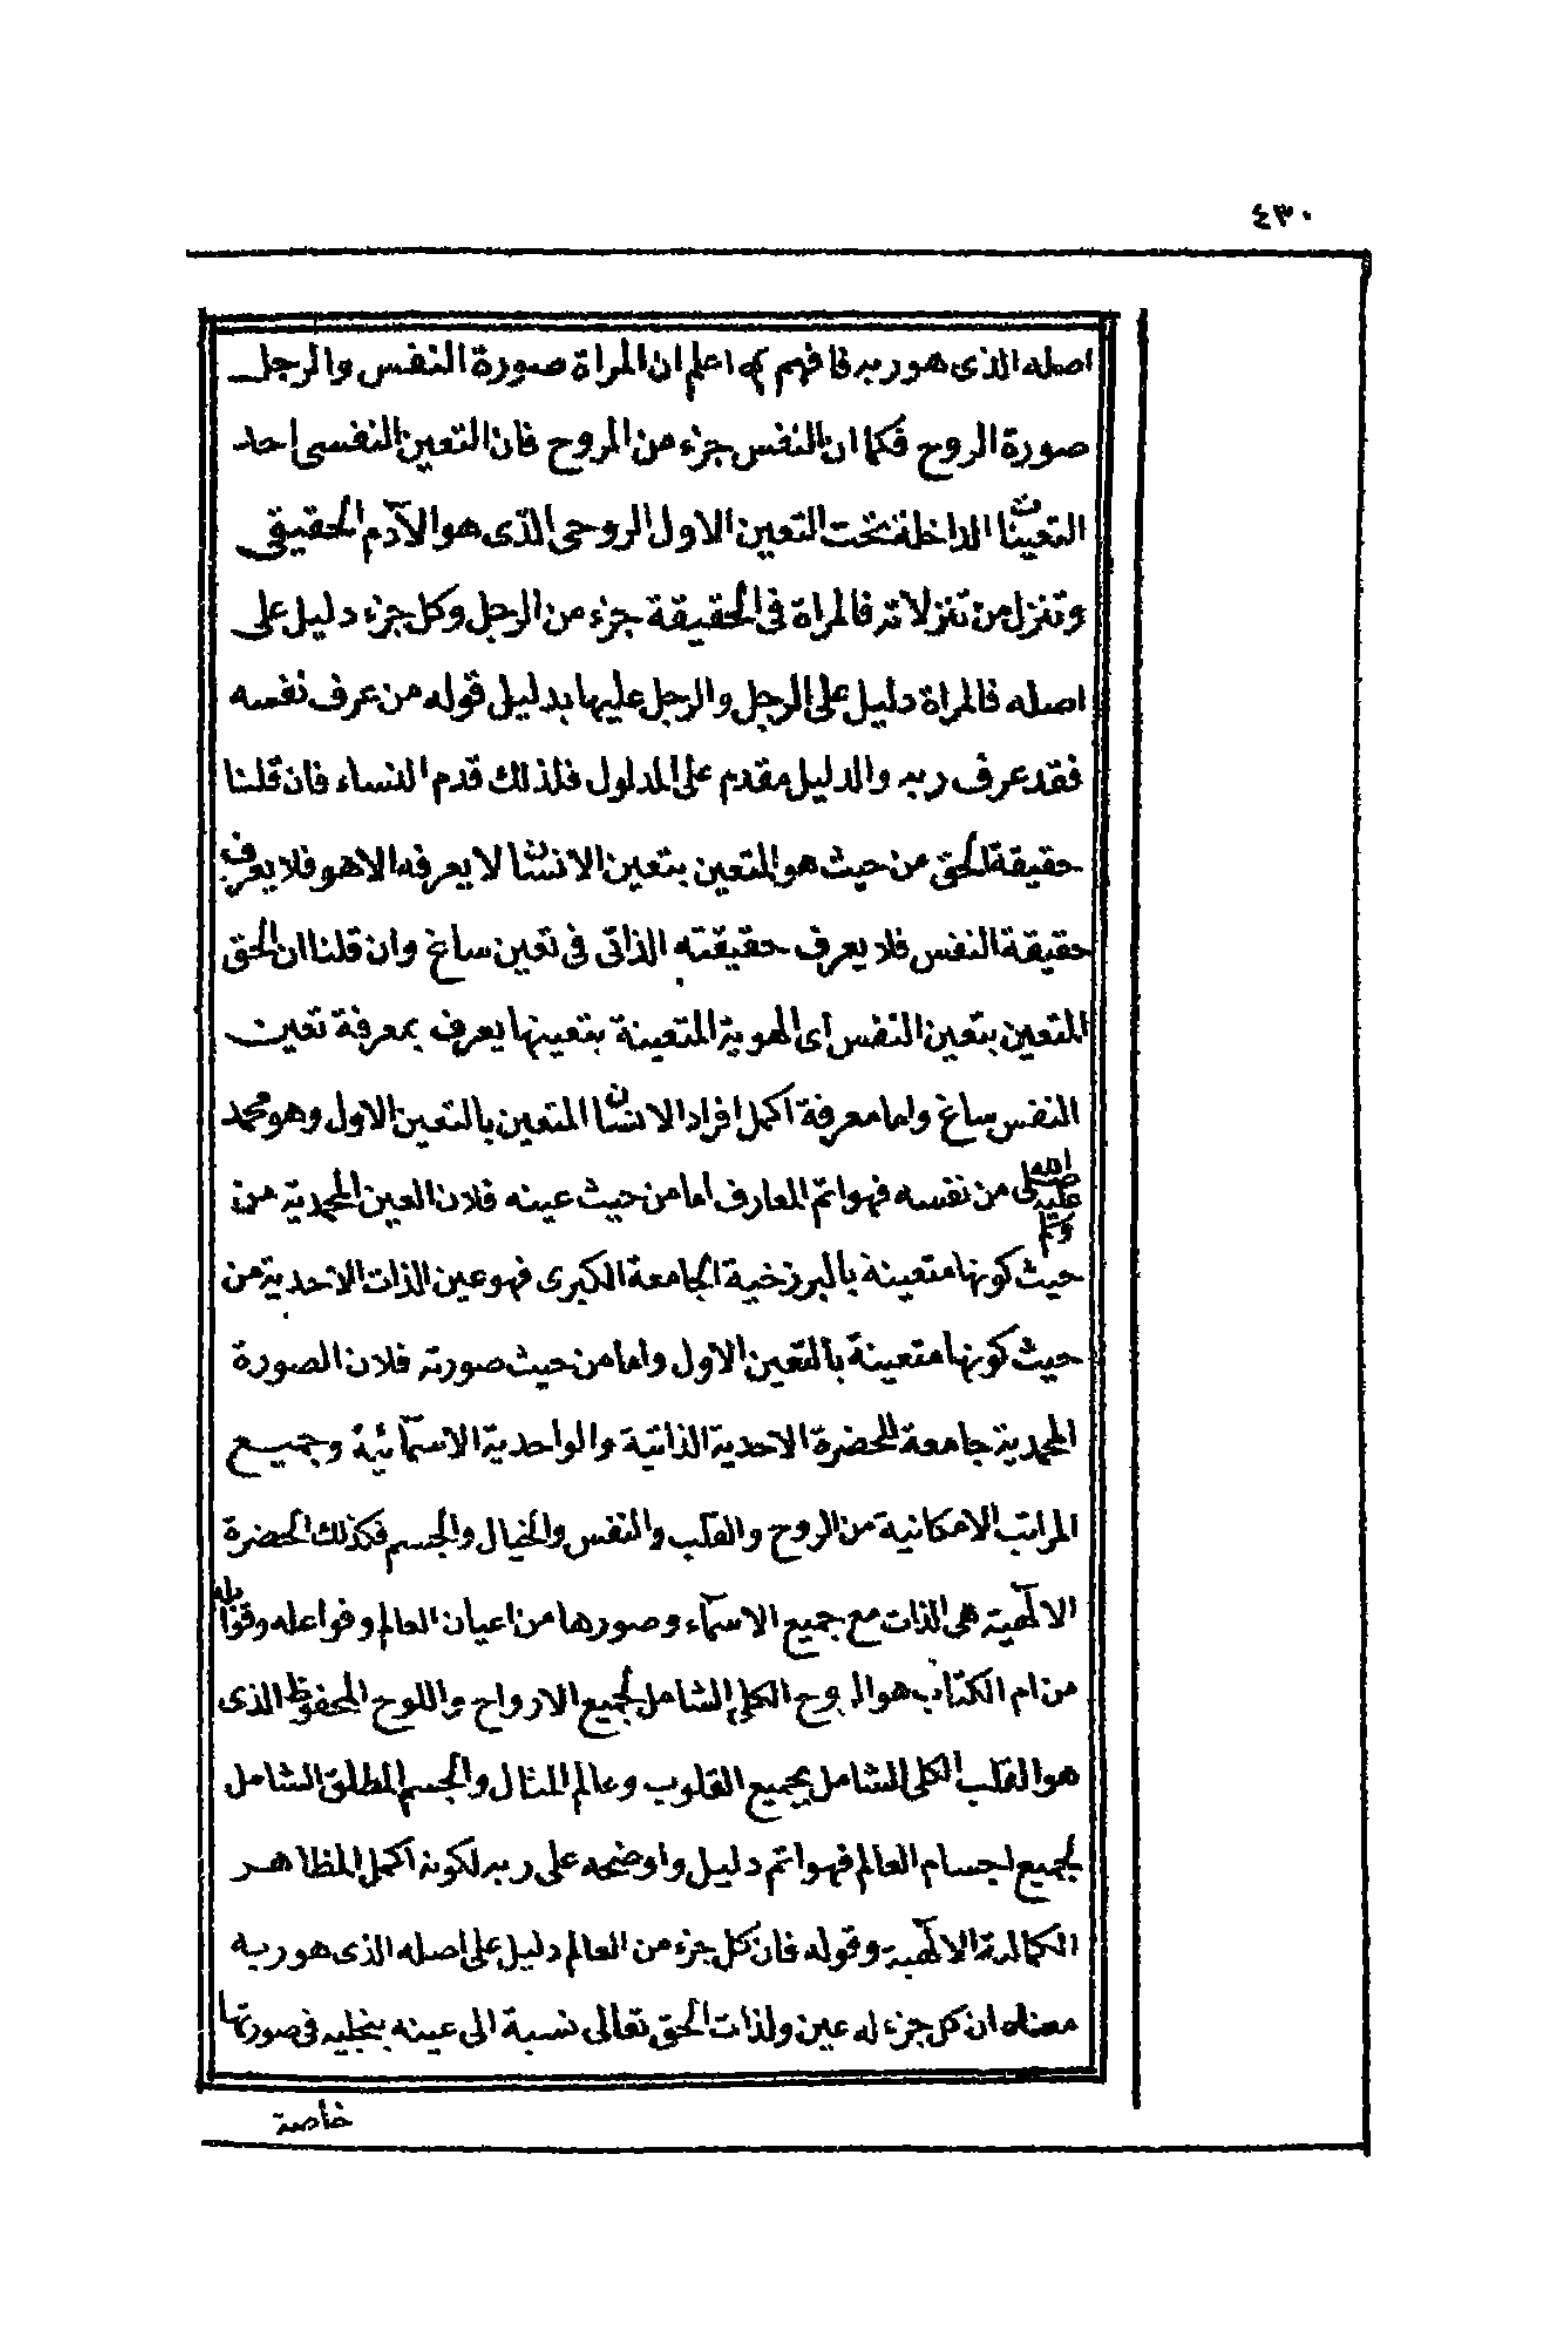 ٤٣٠
اصله الذى هو ربه فافهم اعلم ان المراة صورة النفس والرجل
صورة الروح فكما ان النفس جزء من الروح فان التعين النفسى احد
التعينات الداخلة تحت التعين الاول الروحى الذى هو الآدم الحقيقى
وتنزل من تنزلاته فالمراة فى الحقيقة جزء من الرجل وكل جزء دليل على
اصله فالمراة دليل على الرجل والرجل عليها بدليل قوله من عرف نفسه
فقد عرف ربه والدليل مقدم على المدلول فلذلك قدم النساء فان قلنا
حقيقة الحق من حيث هو المتعين بتعين الانسان لا يعرفه الا هو فلا يعرف
حقيقة النفس فلا يعرف حقيقته الذاتى فى تعين ساغ وان قلنا ان الحق
المتعين بتعين النفس اى الهوية المتعينة بتعينها يعرف بمعرفة تعين
النفس ساغ واما معرفة اكمل افراد الانسان المتعين بالتعين الاول وهو محمد
صلى الله عليه وسلم من نفسه فهو اتم المعارف اما من حيث عينه فلان العين المحمدية من
حيث كونها متعينة بالبرزخية الجامعة الكبرى فهو عين الذات الاحدية من
حيث كونها متعينة بالتعين الاول واما من حيث صورته فلان الصورة
المحمدية جامعة للحضرة الاحدية الذاتية والواحدية الاسمآئية وجميع
المراتب الامكانية من الروح والقلب والنفس والخيال والجسم فكذلك الحضرة
الالٓهية هى الذات مع جميع الاسمآء وصورها من اعيان العالم وفواعله وقوابله
من ام الكتاب هو الروح الكلى الشامل لجميع الارواح واللوح المحفوظ الذى
هو القلب الكلى الشامل بجميع القلوب وعالم المثال والجسم المطلق الشامل
لجميع اجسام العالم فهو اتم دليل واوضحه على ربه لكونه اكمل المظاهر
الكمالية الالٓهية وقوله فان كل جزء من العالم دليل على اصله الذى هو ربه
معناه ان كل جزء له عين ولذات الحق تعالى نسبة الى عينه بتجليه فى صورتها
خاصة